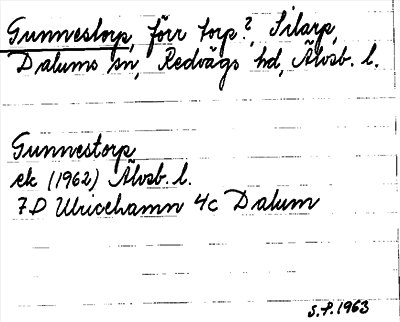 Gunnestorp, förr torp?, Silarp,
Dalums sn, Redvägs hd, Älvsb. l.
Gunnestorp
ek (1962) Älvsb. l.
7D Ulricehamn 4c Dalum
S.P. 1963